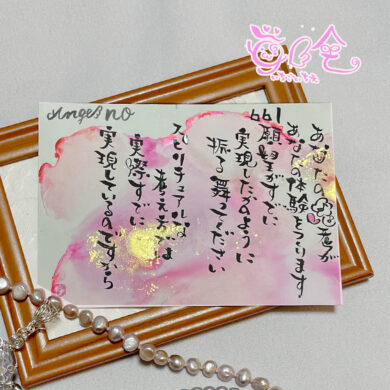 Angel no
あなたの が
あなたの体験をつくります
661
願望がすでに
実現したかのように
振る舞ってください
スピリチュアルな
考え方では
実際すでに
実現しているのですから